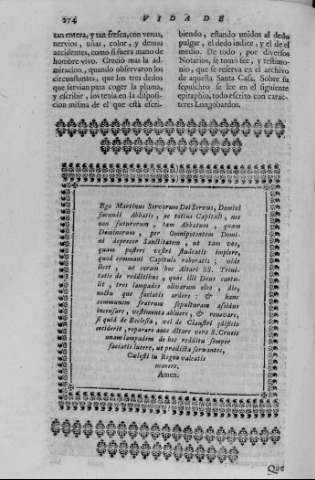 274 VIDA DE
tan entera, y tan fresca, con venas,
nervios, uñas, color, y demas
accidentes, como si fuera mano de
hombre vivo. Creciò mas la ad-
miracion, quando observaron los
circunstantes, que los tres dedos
que servian para coger la pluma,
y escribir, los tenia en la disposi-
cion misma de el que està escri-
biendo, estando unidos al dedo
pulgar, el dedo indice, y el de el
medio. De todo, por diversos
Notarios, se tomò fee, y testimo-
nio, que se reserva en el archivo
de aquella Santa Casa. Sobre su
sepulchro se lee en el siguiente
epitaphio, todo escrito con carac-
teres Longobardos.
Ego Martinus Servorum Dei Servus, Domini
Abbatis, ac totius Capituli, nec
non futurorum, tam Abbatum, quam
Dominorum, per Omnipotentem Domi-
ni deprecor Sanctitatem, ut tam vos,
quam posteri vestri studeatis implere,
quod communi Capitulo roboratis; vide
licet, ut coram hoc Altari SS. Trini-
tatis de redditibus, quos illi Deus contu-
lit, tres lampades olivarum oleo, die,
noctu que faciatis ardere: & hanc
communem fratrum sepulturam assidue
incensare, vestimenta abluere, & renovare,
si quid de Ecclesia, vel de Claustri
ceciderit, reparare ante Altare vero S. Crucis
unam lampadem de hoc redditu semper
faciatis lucere, ut prædicta servantes,
Cælesti in Regno valeatis
manere,
Amen.
Que